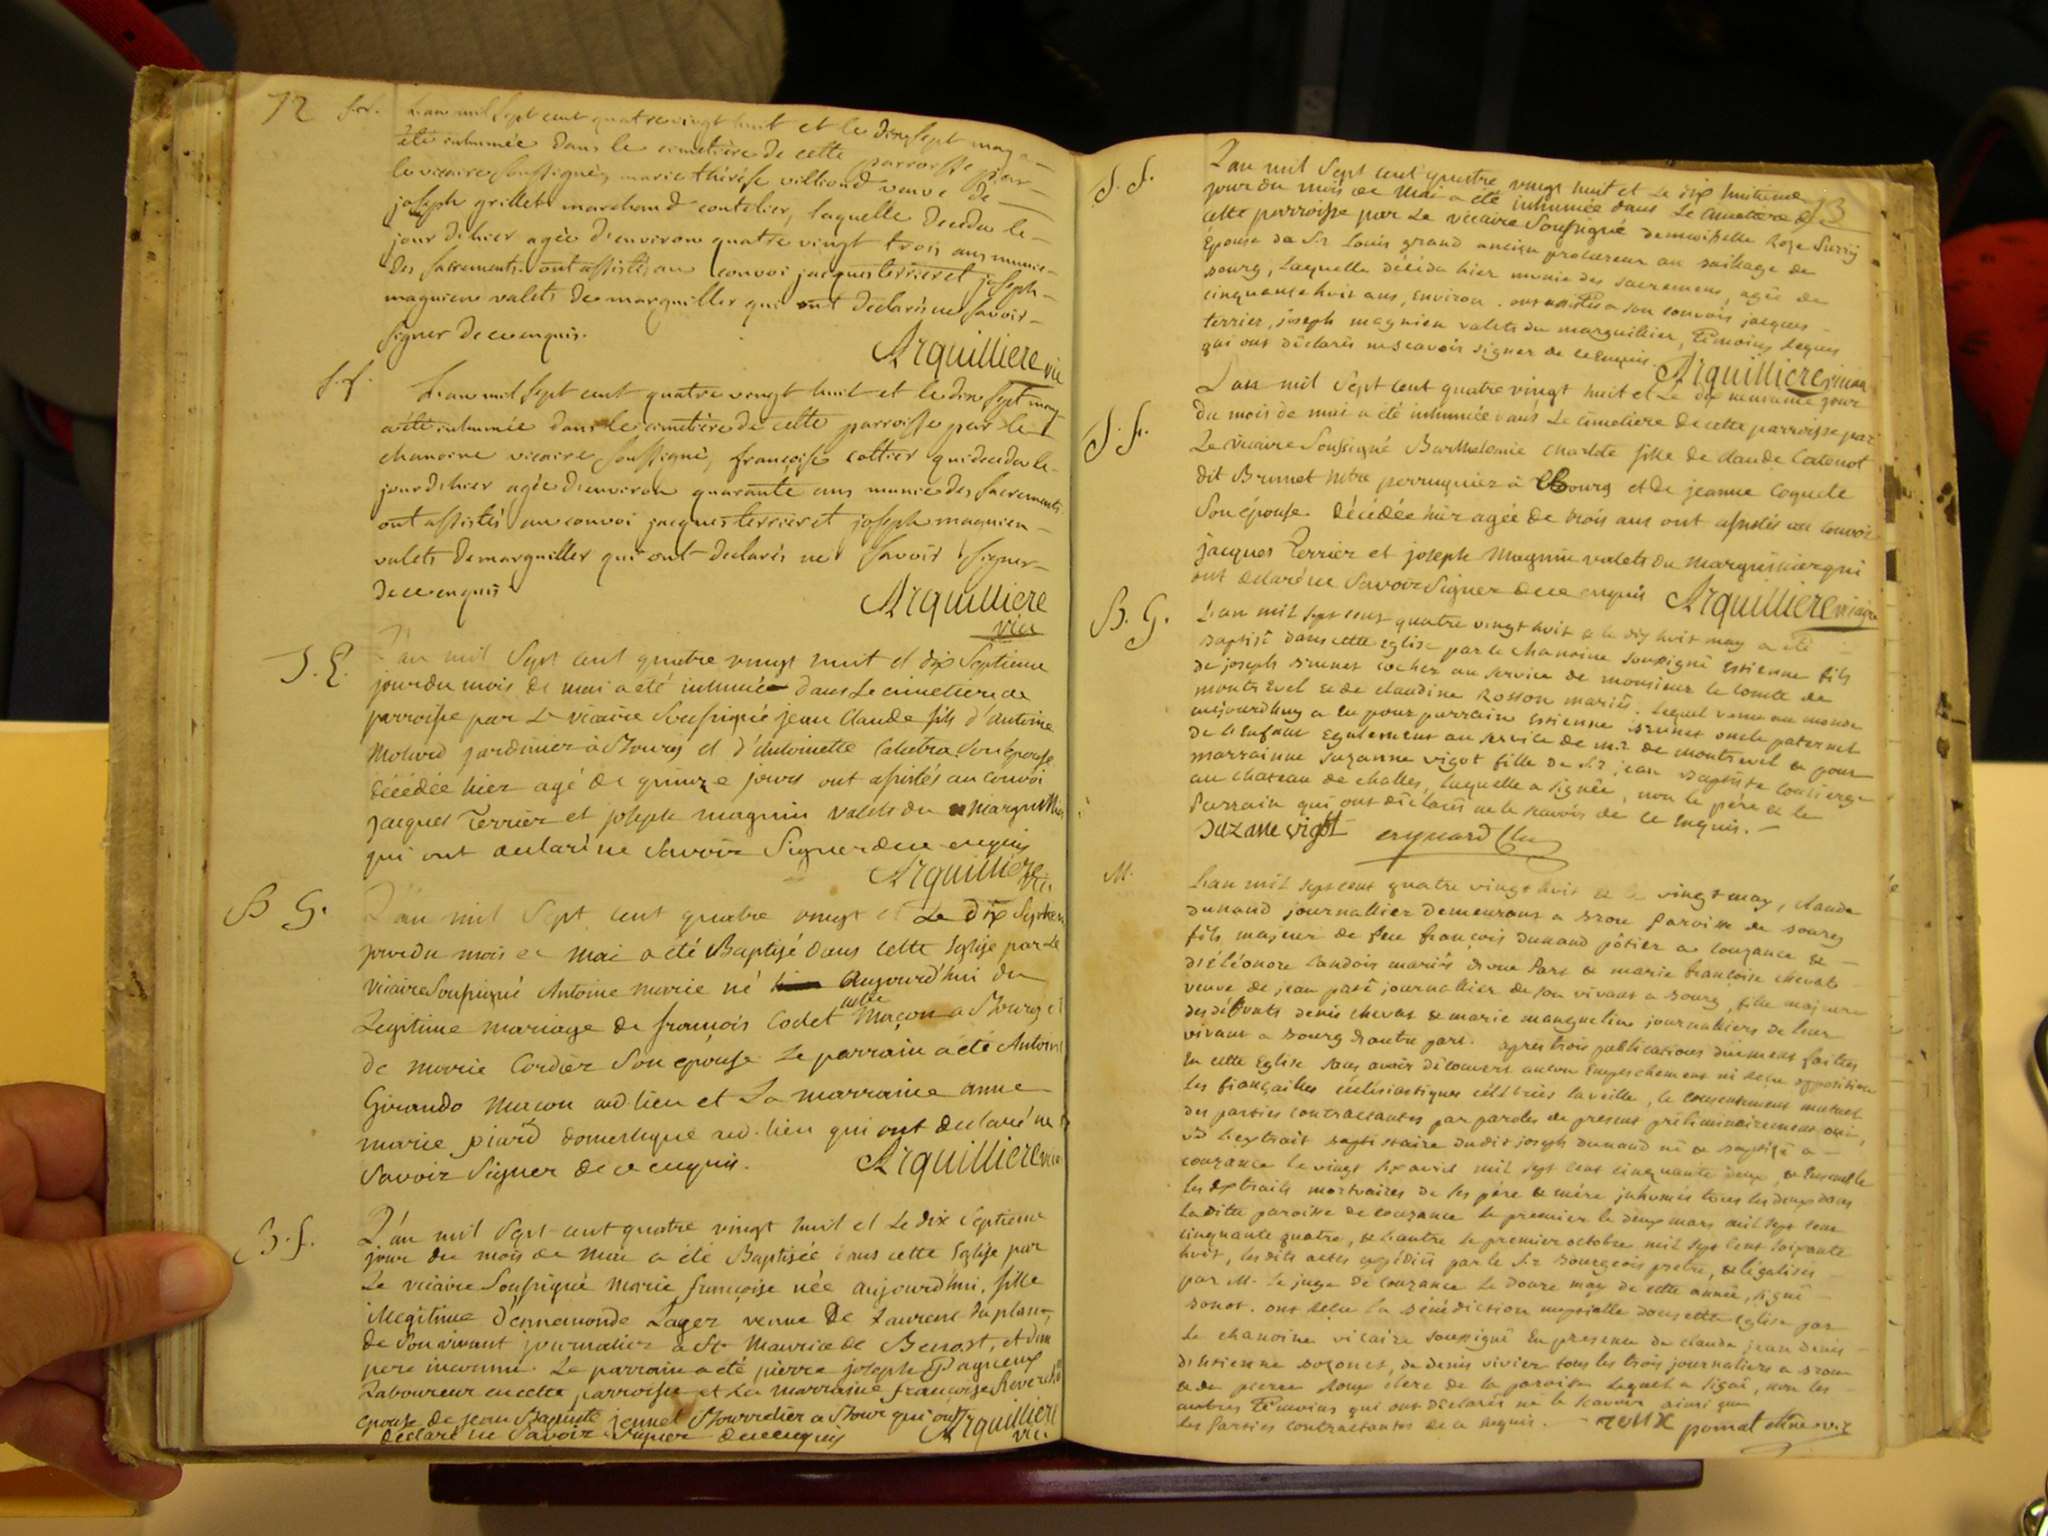 72
S.f.
L'an mil sept cent quatre vingt huit et le dix sept may a
été inhumée dans le cimetière de cette parroisse par
le vicaire soussigné, marie thérèse villioud veuve de
joseph grillet marchand coutelier, laquelle decedu le
jour d'hier agée d'environ quatre vingt trois ans munie
des sacrements. ont assistés au convoi jacques terrier et joseph
magnien valets de marguiller qui ont declarés ne savoir
signer de ce enquis.
Arquilliere vic
S.f.
L'an mil sept cent quatre vingt huit et le dix sept may
a été inhumée dans le cimetière de cette parroisse par le
chanoine vicaire soussigné, françoise cottier qui decedu le
jour d'hier agée d'environ quarante ans munie des sacrements
ont assistés au convoi jacques terrier et joseph magnien
valets de marguiller qui ont declarés ne savoir signer
de ce enquis
Arquilliere
vic
S. E.
L'an mil sept cent quatre vingt huit et dix septieme
jour du mois de mai a été inhumée dans Le cimetiere de
parroisse par Le vicaire Soussigné jean Claude fils d'Antoine
jardinier à Bourg et d'Antoinette son épouse
décédée hier agé de quinze jours ont assistés au convoi
jacques Terrier et joseph magnin valets du marguillier
qui ont declaré ne savoir Signer de ce enquis
Arquilliere
vic.
B G.
L'an mil sept cent quatre vingt et Le dix septiem
jour du mois de mai a été Baptisé dans cette Eglise par Le
vicaire Soussigné Antoine marie né aujourd'hui du
Legitime mariage de françois Codet Maçon a Bourg et
de marie Cordier Son epouse. Le parrain a été Antoin
Girando maçon aud. lieu et La marraine anne
marie piard domestique aud. lieu qui ont declaré ne
savoir signer de ce enquis.
Arquilliere vic
B. f.
L'an mil sept cent quatre vingt huit et Le dix septieme
jour du mois de mai a été Baptisée dans cette Eglise par
Le vicaire Soussigné Marie françoise née aujourd'hui, fille
illegitime d'ennemonde Lager veuve de Laurent
de son vivant journalier a St Maurice de Benost, et d'un
pere inconnu. Le parrain a été pierre joseph Pagneux
Laboureur en cette parroisse et La marraine françoise
epouse de jean Baptiste jennet Bourrelier a Bour qui ont
declaré ne savoir signer de ce enquis
Arquilliere
vic
73
S. f.
L'an mil sept cent quatre vingt huit et Le dix huitieme
jour du mois de Mai a été inhumée dans Le cimetiere de
cette parroisse par Le vicaire Soussigné demoiselle Rose
Épouse de Sr Louis grand ancien procureur au bailliage de
bourg, Laquelle décéda hier munie des sacremens, agée de
cinquante huit ans, environ. ont assistés a son convoi jacques
terrier, joseph magnien valets du marguillier, témoins requis
qui ont déclarés ne scavoir signer de ce enquis.
Arquilliere vicaire
S. f.
L'an mil sept cent quatre vingt huit et Le dix neuvieme jour
du mois de mai a été inhumée dans Le cimetiere de cette parroisse par
Le vicaire Soussigné Barthelemie charlote fille de claude Catenot
dit Brunet perruquier à Bourg et de jeanne Coquele
Son épouse décédée hier agée de trois ans ont assistés au convoi
jacques Terrier et joseph Magnin valets du Marguillier qui
ont declaré ne Savoir Signer de ce enquis
Arquilliere vicaire
B. G.
L'an mil sept cent quatre vingt huit & le dix huit may a été
baptisé dans cette eglise par le chanoine soussigné estienne fils
de joseph brunet cocher au service de monsieur le Comte de
montrevel & de claudine Rosson mariés. Lequel venu au monde
aujourdhuy a eu pour parrain estienne brunet oncle paternel
de l'enfant egalement au service de mr. de montrevel & pour
marrainne suzanne vigot fille de Sr jean baptiste Concierge
au chateau de challes, laquelle a signée, non le père & le
parrain qui ont déclarés ne le scavoir de ce enquis.
Suzane vigot
M.
L'an mil sept cent quatre vingt huit & le vingt may, claude
dunand journallier demeurant a brou paroisse de bourg
fils majeur de feu françois dunand pôtier a couzance &
d'éléonore mariés d'une part & marie françoise chevat
veuve de jean journallier de son vivant a bourg, fille majeure
des défunts denis chevat & marie journalliers de leur
vivant a bourg d'autre part. apres trois publications duement faites
en cette Eglise sans avoir découvert aucun empeschement ni reçu opposition
les fiançailles éclésiastiques célébrées la veille, le consentement mutuel
des parties contractantes par paroles de present préliminairement oui,
vu l'extrait baptistaire dudit joseph dunand né & baptisé a
couzance le vingt six avril mil sept cent cinquante deux, & ensemble
les extraits mortuaires de ses père & mère inhumés tous les deux dans
la ditte paroisse de couzance le premier le deux mars mil sept cent
cinquante quatre, & l'autre le premier octobre mil sept cent soixante
huit, les dits actes expédiés par le Sr bourgeois pretre, & légalisés
par M. Le juge de couzance Le douze may de cette année, signé
bonot. ont reçu la bénédiction nuptialle dans cette eglise par
le chanoine vicaire soussigné en presence de claude jean denis
d'estienne, de denis vivier tous les trois journaliers a brou
& de pierre Roux clerc de la paroisse lequel a signé, non les
autres témoins qui ont déclarés ne le scavoir ainsi que
les parties contractantes de ce enquis.
roux